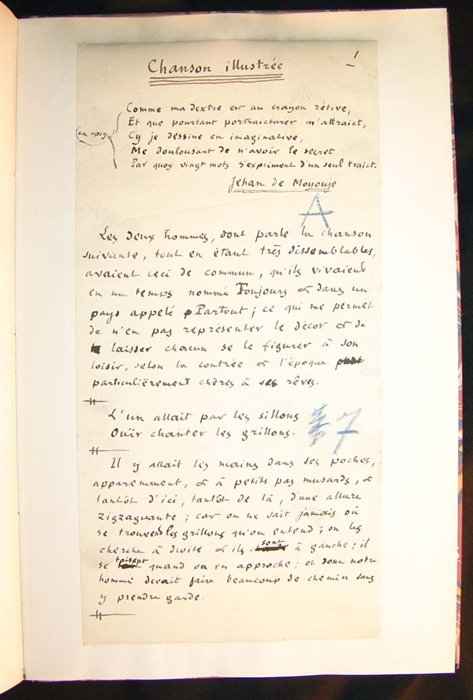 1
Chanson illustrée
Comme ma dextre est au crayon rétive,
Et que pourtant portraicturer m'attraict,
en épig.
Cy je dessine en imaginative,
Me doulousant de n'avoir le secret
Par quoy vingt mots s'expriment d'un seul traict.
Jehan de Moyouje
A
Les deux hommes, dont parle la chanson
suivante, tout en étant très dissemblables,
avaient ceci de commun, qu'ils vivaient
en un temps nommé Toujours & dans un
pays appelé Partout; ce qui me permet
de n'en pas représenter le décor & de
laisser chacun se le figurer à son
loisir, selon la contrée & l'époque
particulièrement chères à ses rêves.
L'un allait par les sillons
7
Ouïr chanter les grillons.
Il y allait les mains dans ses poches,
apparemment, & à petits pas musards, &
tantôt d'ici, tantôt de là, d'une allure
zigzaguante; car on ne sait jamais où
se trouvent les grillons qu'on entend; on les
cherche à droite & ils sont à gauche; il
se taisent quand on en approche; et donc notre
homme devait faire beaucoup de chemin sans
y prendre garde.